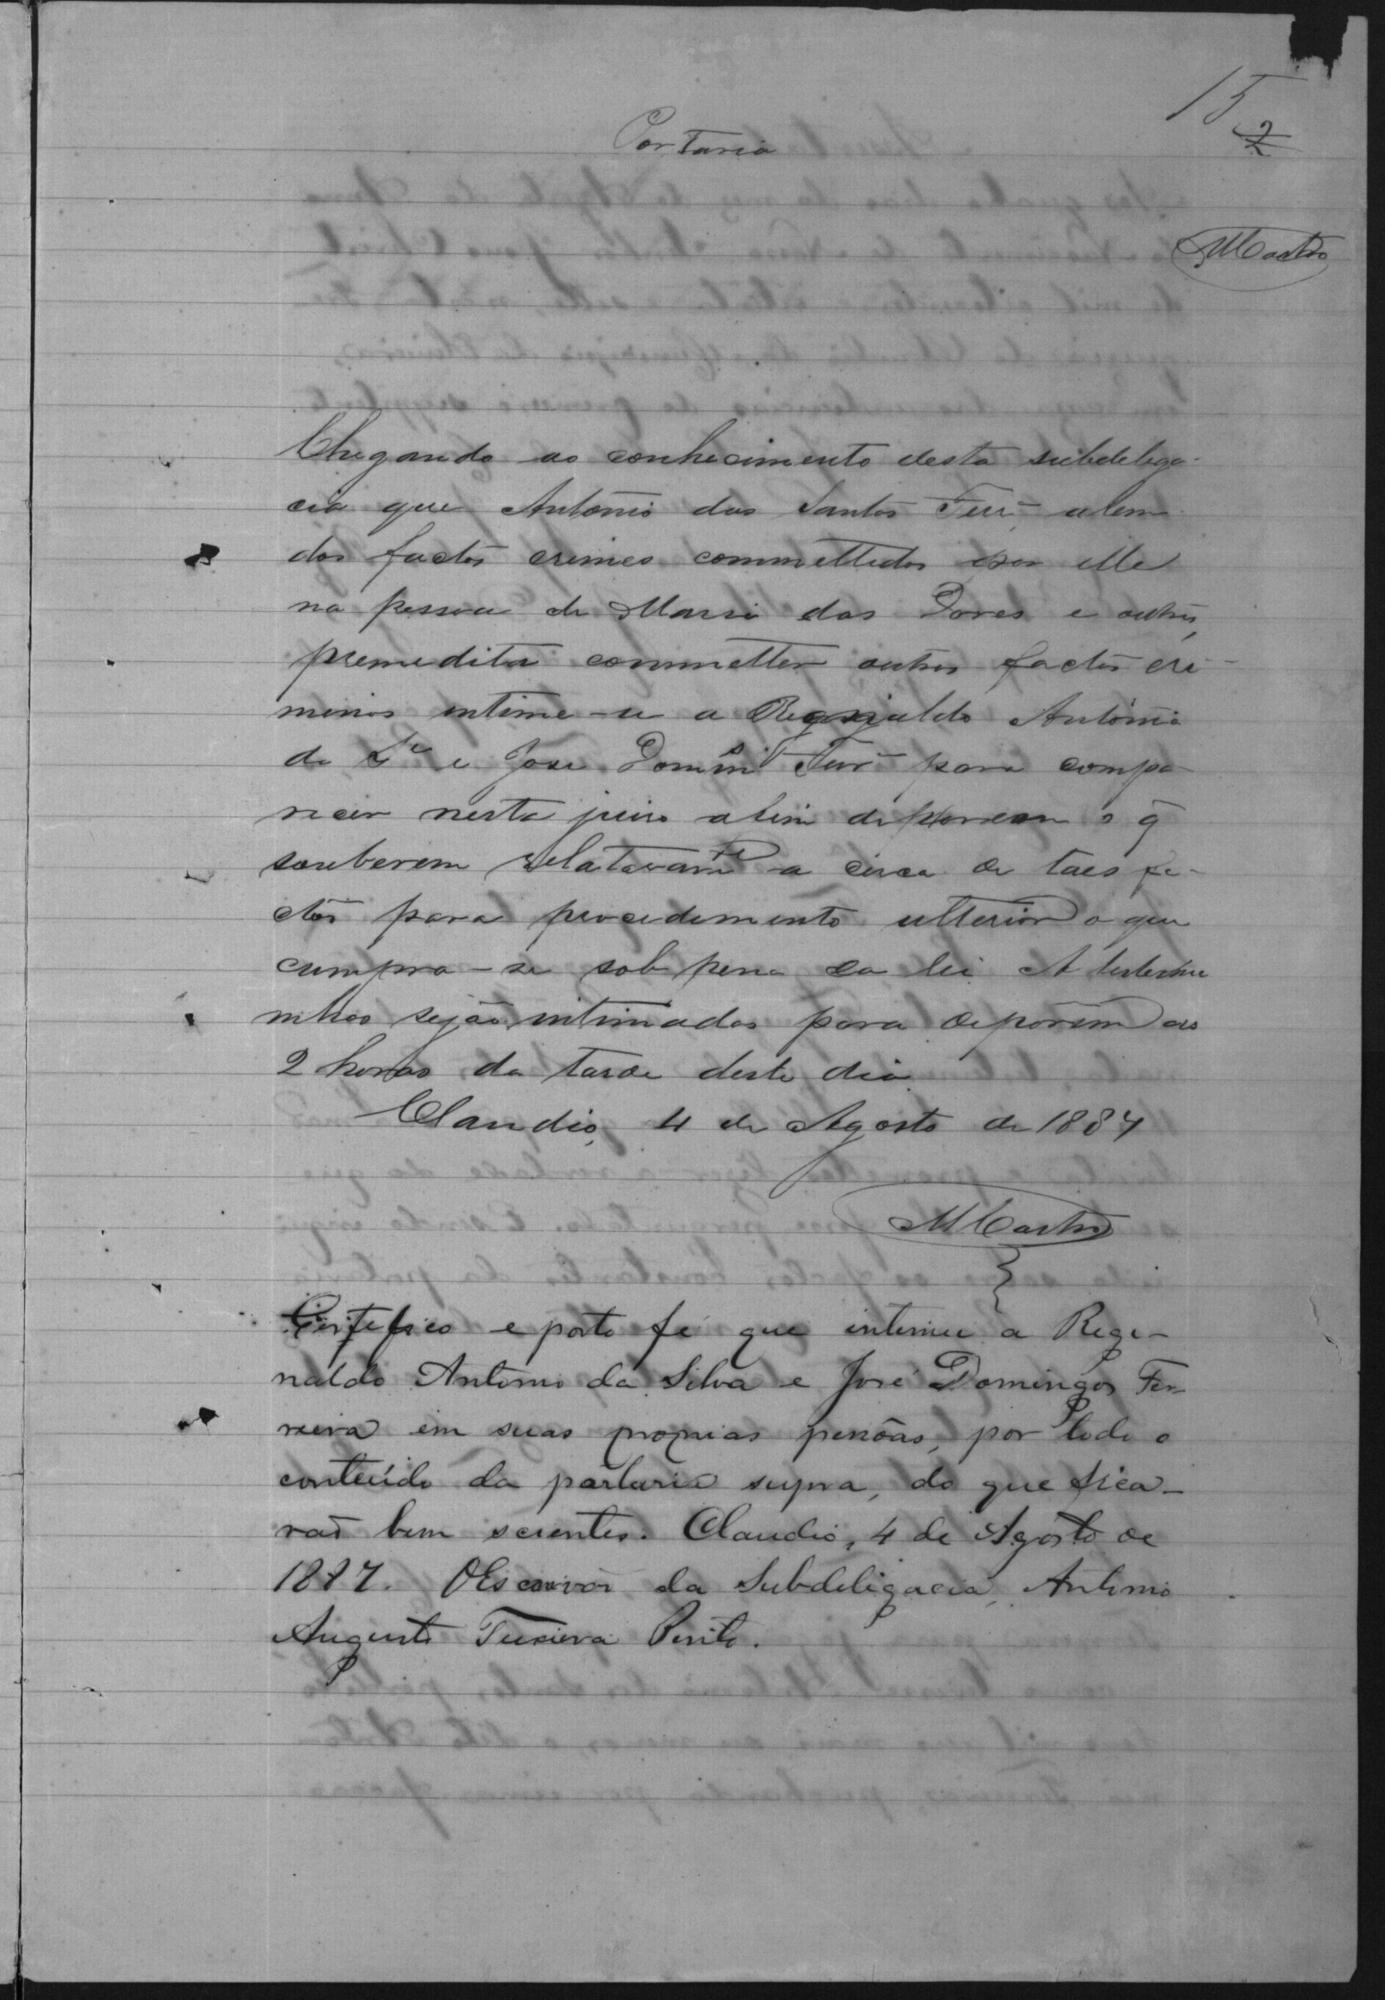 15
2
Portaria
MCastro
Chegando ao conhecimento desta subdelega-
cia que Antonio dos Santos Ferrª, alem
dos factos crimes commettidos por elle
na pessoa de Maria das Dores e outros,
premedita commetter outros factos cri-
minos intime-se a Reginaldo Antonio
da Sª e Jose Domingˢ Ferrª para compa-
recer neste juiso afim deporem o q̃
souberem relatavamᵗᵉ a cerca de taes fa-
ctos para procedimento ulterior o que
cumpra-se sob pena da lei A testemu
nhas sejão intimadas para deporem as
2 horas da tarde deste dia
Claudio, 4 de Agosto de 1887
MCastro
Certefico e porto fé que intimei a Regi-
naldo Antonio da Silva e José Domingos Fer-
reira em suas proprias pessôas, por todo o
conteúdo da portaria supra, do que fica-
raõ bem scientes. Claudio, 4 de Agosto de
1887. O Escrivão da Subdeligacia, Antonio
Augusto Teixeira Penito.